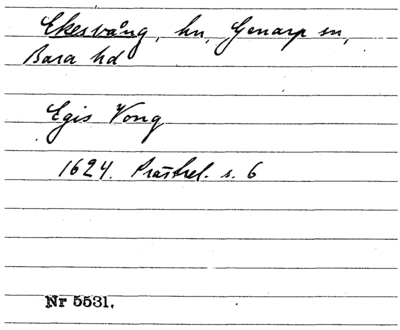 Ekesvång, hn, Genarp sn,
Bara hd
Egis Vong
1624. Prästrel. s. 6
Nr 5531.